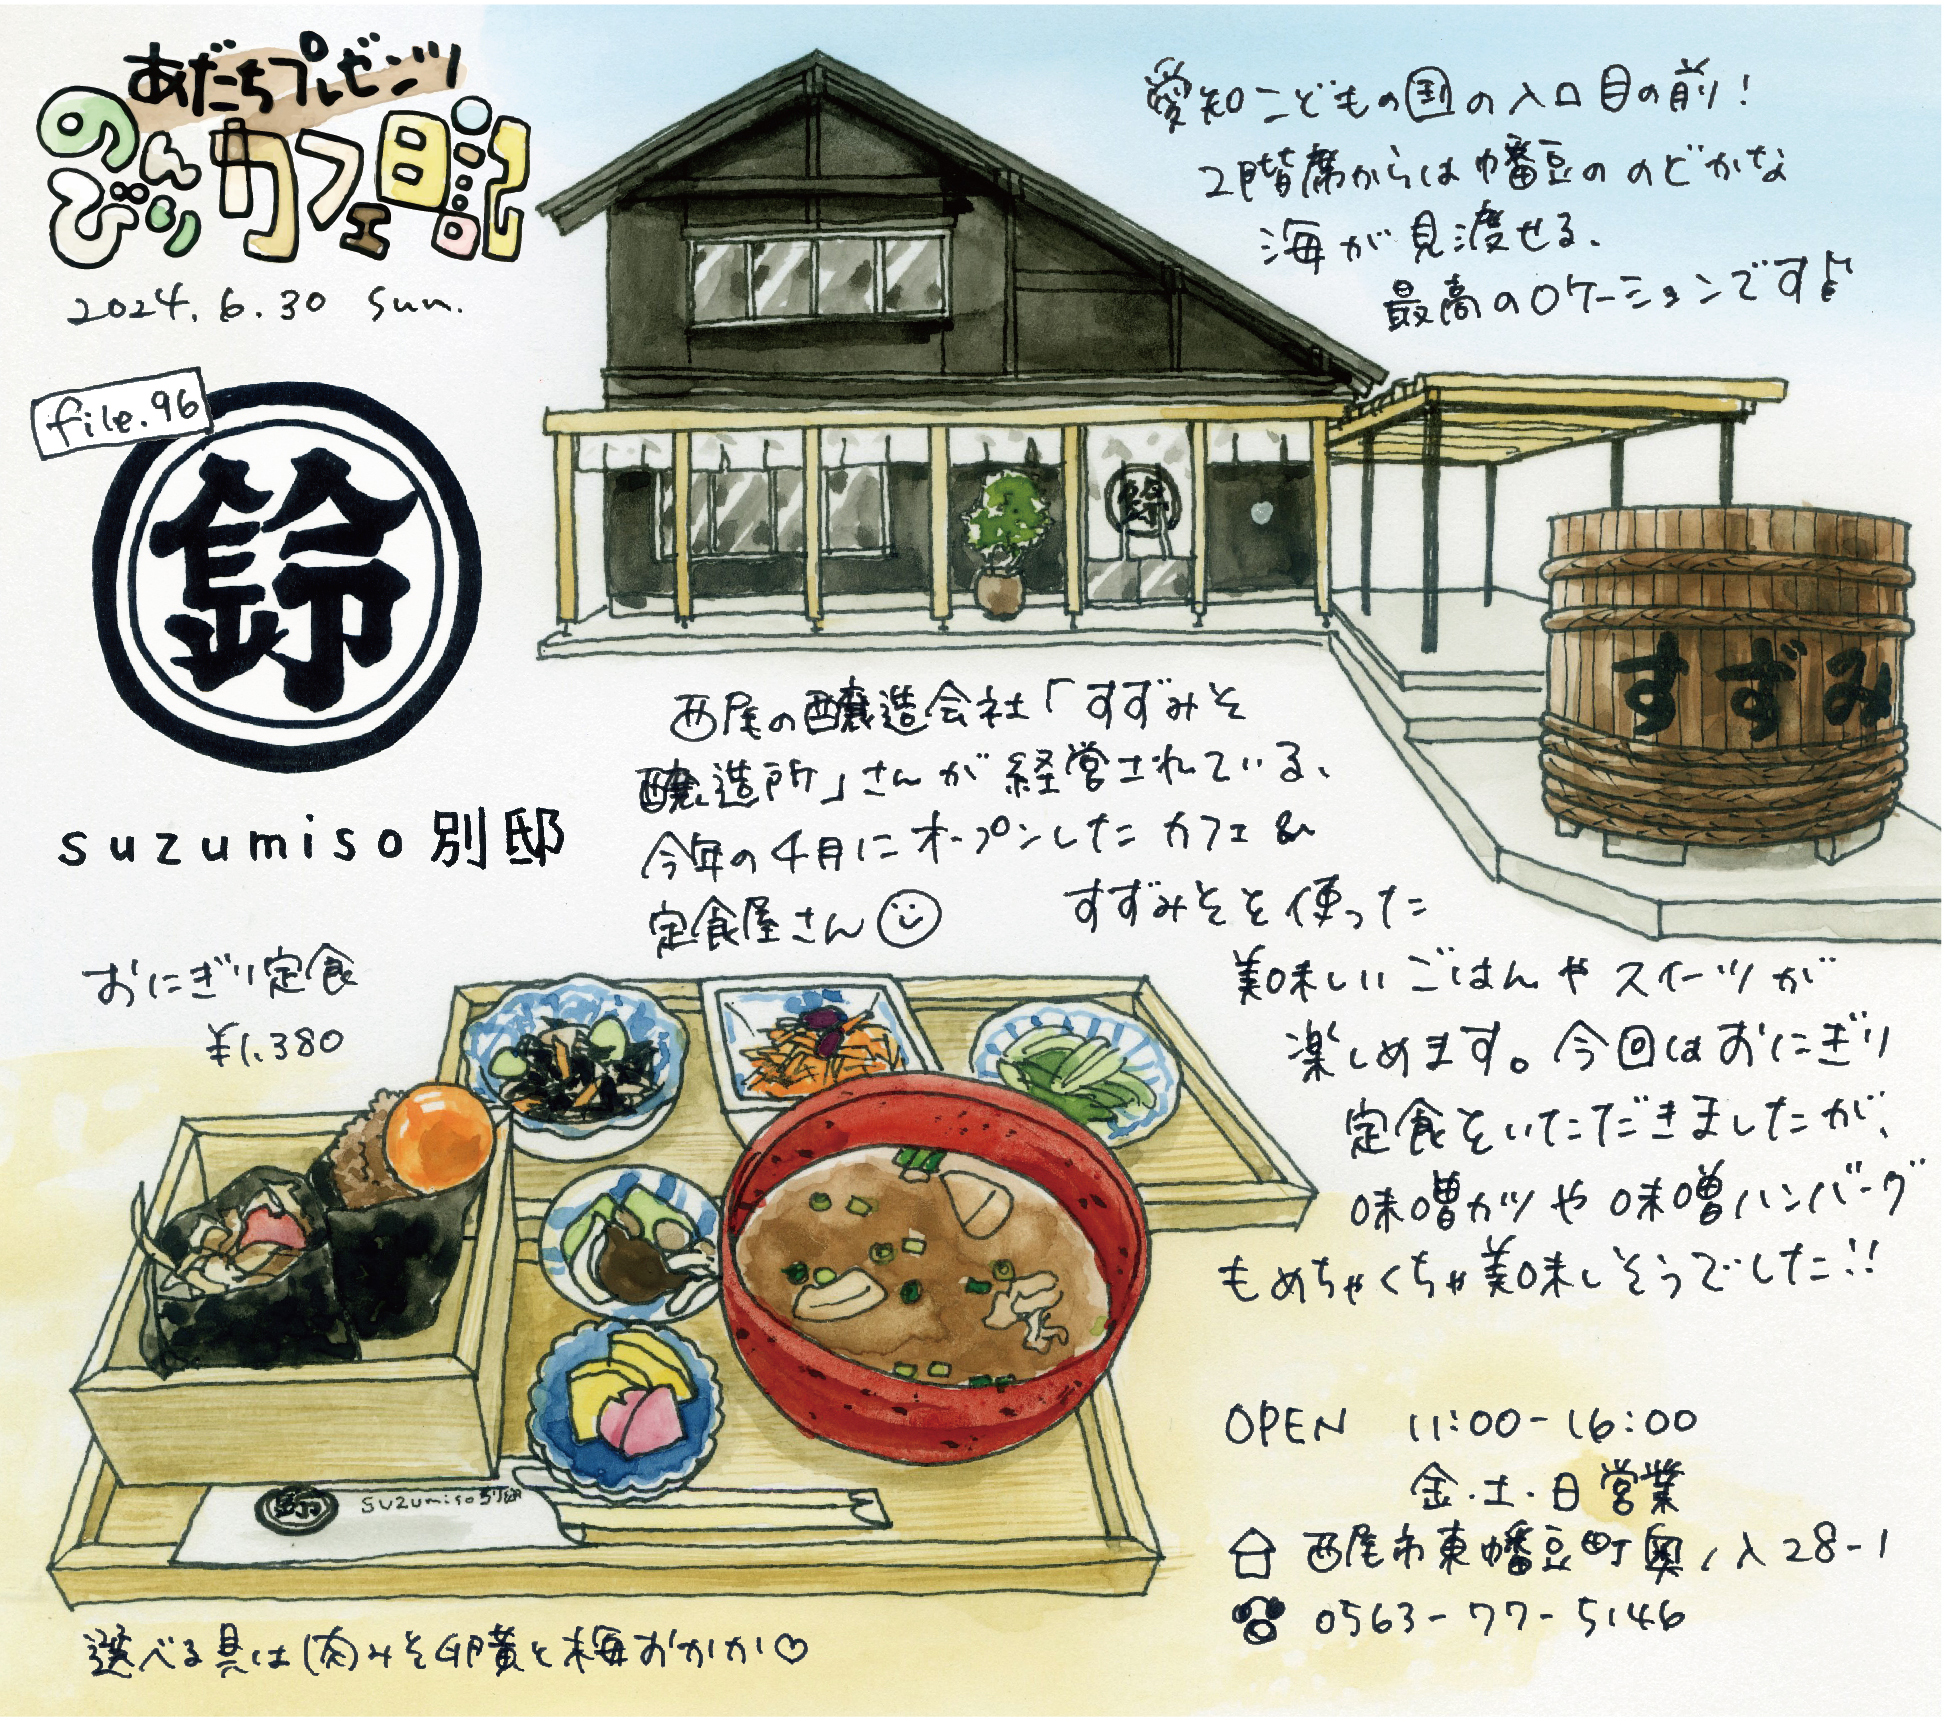 あだちプレゼンツ
のんびりカフェ日記
2024.6.30 sun.
file.96
鈴
suzumiso 別邸
愛知こどもの国の入口目の前!
2階席からは幡豆ののどかな
海が見渡せる、
最高のロケーションです♪
鈴
すずみ
西尾の醸造会社「すずみそ
醸造所」さんが経営されている、
今年の4月にオープンしたカフェ&
定食屋さん
すずみそを使った
美味しいごはんやスイーツが
楽しめます。今回はおにぎり
定食をいただきましたが、
味噌カツや味噌ハンバーグ
もめちゃくちゃ美味しそうでした!!
おにぎり定食
¥1,380
鈴 suzumiso別邸
選べる具は(肉)みそ卵黄と梅おかか♡
OPEN 11:00-16:00
金・土・日営業
西尾市東幡豆町奥ノ入28-1
0563-77-5146